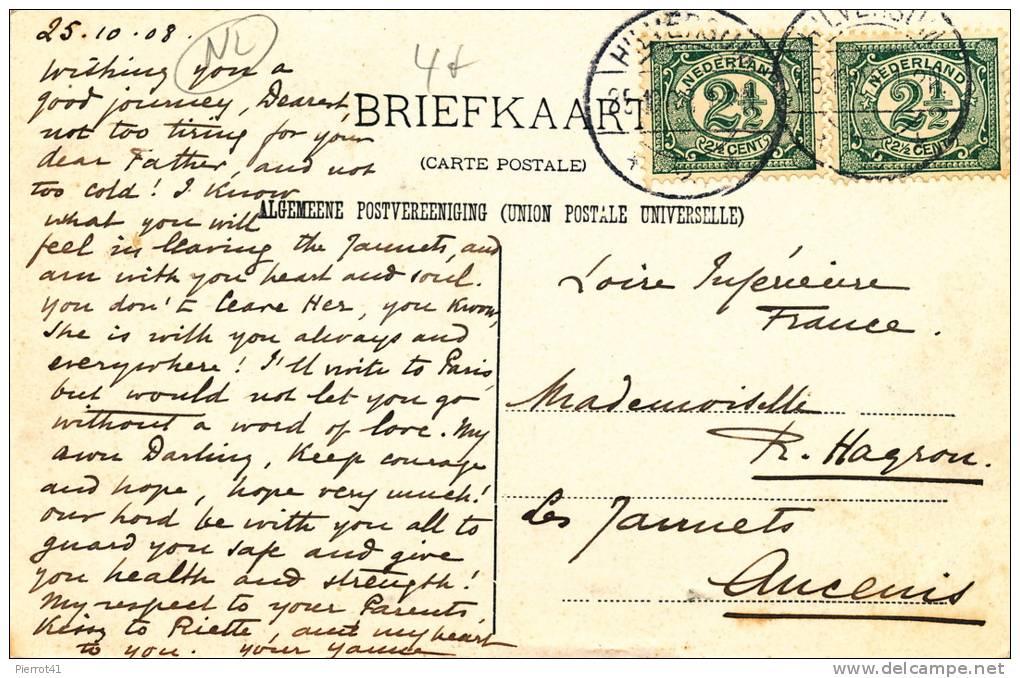 25.10.08.
NL
4+
Wishing you a
good journey, Dearest,
not too tiring for your
dear Father, and not
too cold! I know
what you will
feel in leaving the Jaunets, and
am with you heart and soul.
You don't leave Her, you know,
she is with you always and
everywhere! I'll write to Paris,
but would not let you go
without a word of love. My
own Darling, keep courage
and hope, hope very much!
Our Lord be with you all to
guard you safe and give
you health and strength!
My respect to your Parents,
Kiss to Riette, and my heart
to you. Your Yanne
BRIEFKAART
(CARTE POSTALE)
ALGEMEENE POSTVEREENIGING (UNION POSTALE UNIVERSELLE)
HILVERSUM
NEDERLAND
2 1/2
2½ CENT
HILVERSUM
NEDERLAND
2 1/2
2½ CENT
Loire Inférieure
France.
Mademoiselle
R. Hagron.
Les Jaunets
Ancenis
Pierrot41
delcampe.net